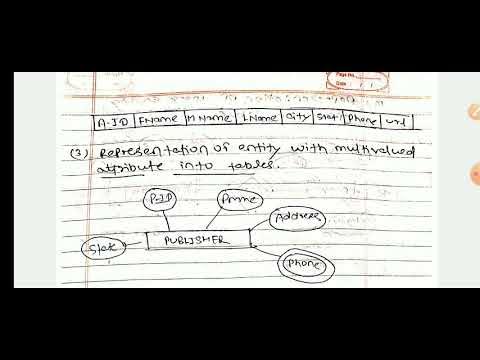 Page No.
Date
A-ID FName M Name LName City Stat Phone url
(3) Representation of entity with multivalued
attribute into tables.
P-ID
Pname
Address
State
PUBLISHER
Phone